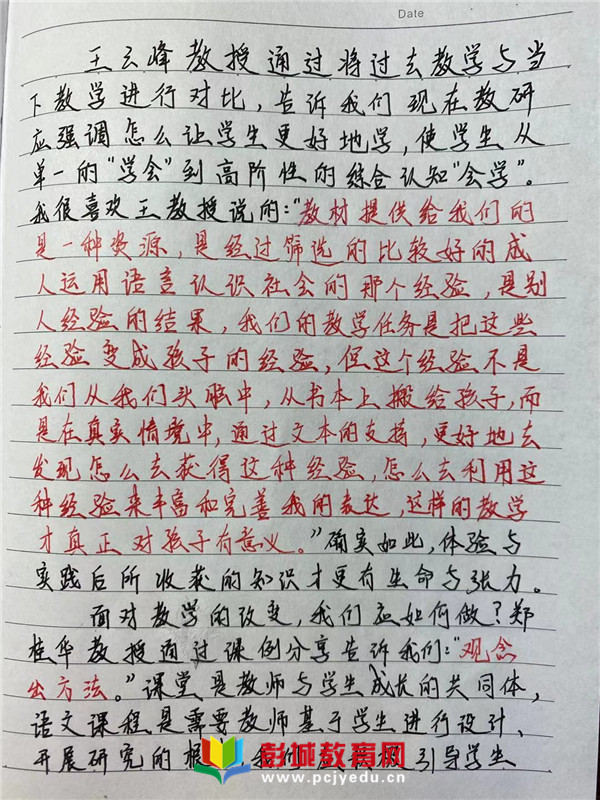 Date
王云峰教授通过将过去教学与当
下教学进行对比，告诉我们现在教研
应强调怎么让学生更好地学，使学生从
单一的“学会”到高阶性的综合认知“会学”。
我很喜欢王教授说的：“教材提供给我们的
是一种资源，是经过筛选的比较好的成
人运用语言认识社会的那个经验，是别
人经验的结果，我们的教学任务是把这些
经验变成孩子的经验，但这个经验不是
我们从我们头脑中，从书本上搬给孩子，而
是在真实情境中，通过文本的支持，更好地去
发现怎么去获得这种经验，怎么去利用这
种经验来丰富和完善我的表达，这样的教学
才真正对孩子有意义。”确实如此，体验与
实践后所收获的知识才更有生命与张力。
面对教学的改变，我们应如何做？郑
桂华教授通过课例分享告诉我们：“观念
出方法。”课堂是教师与学生成长的共同体，
语文课程是需要教师基于学生进行设计、
开展研究的，我们引导学生
彭城教育网
www.pcjyedu.cn